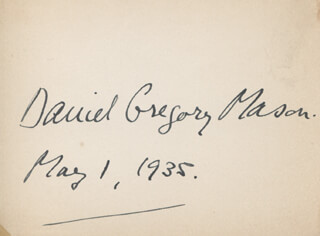 Daniel Gregory Mason.
May 1, 1935.